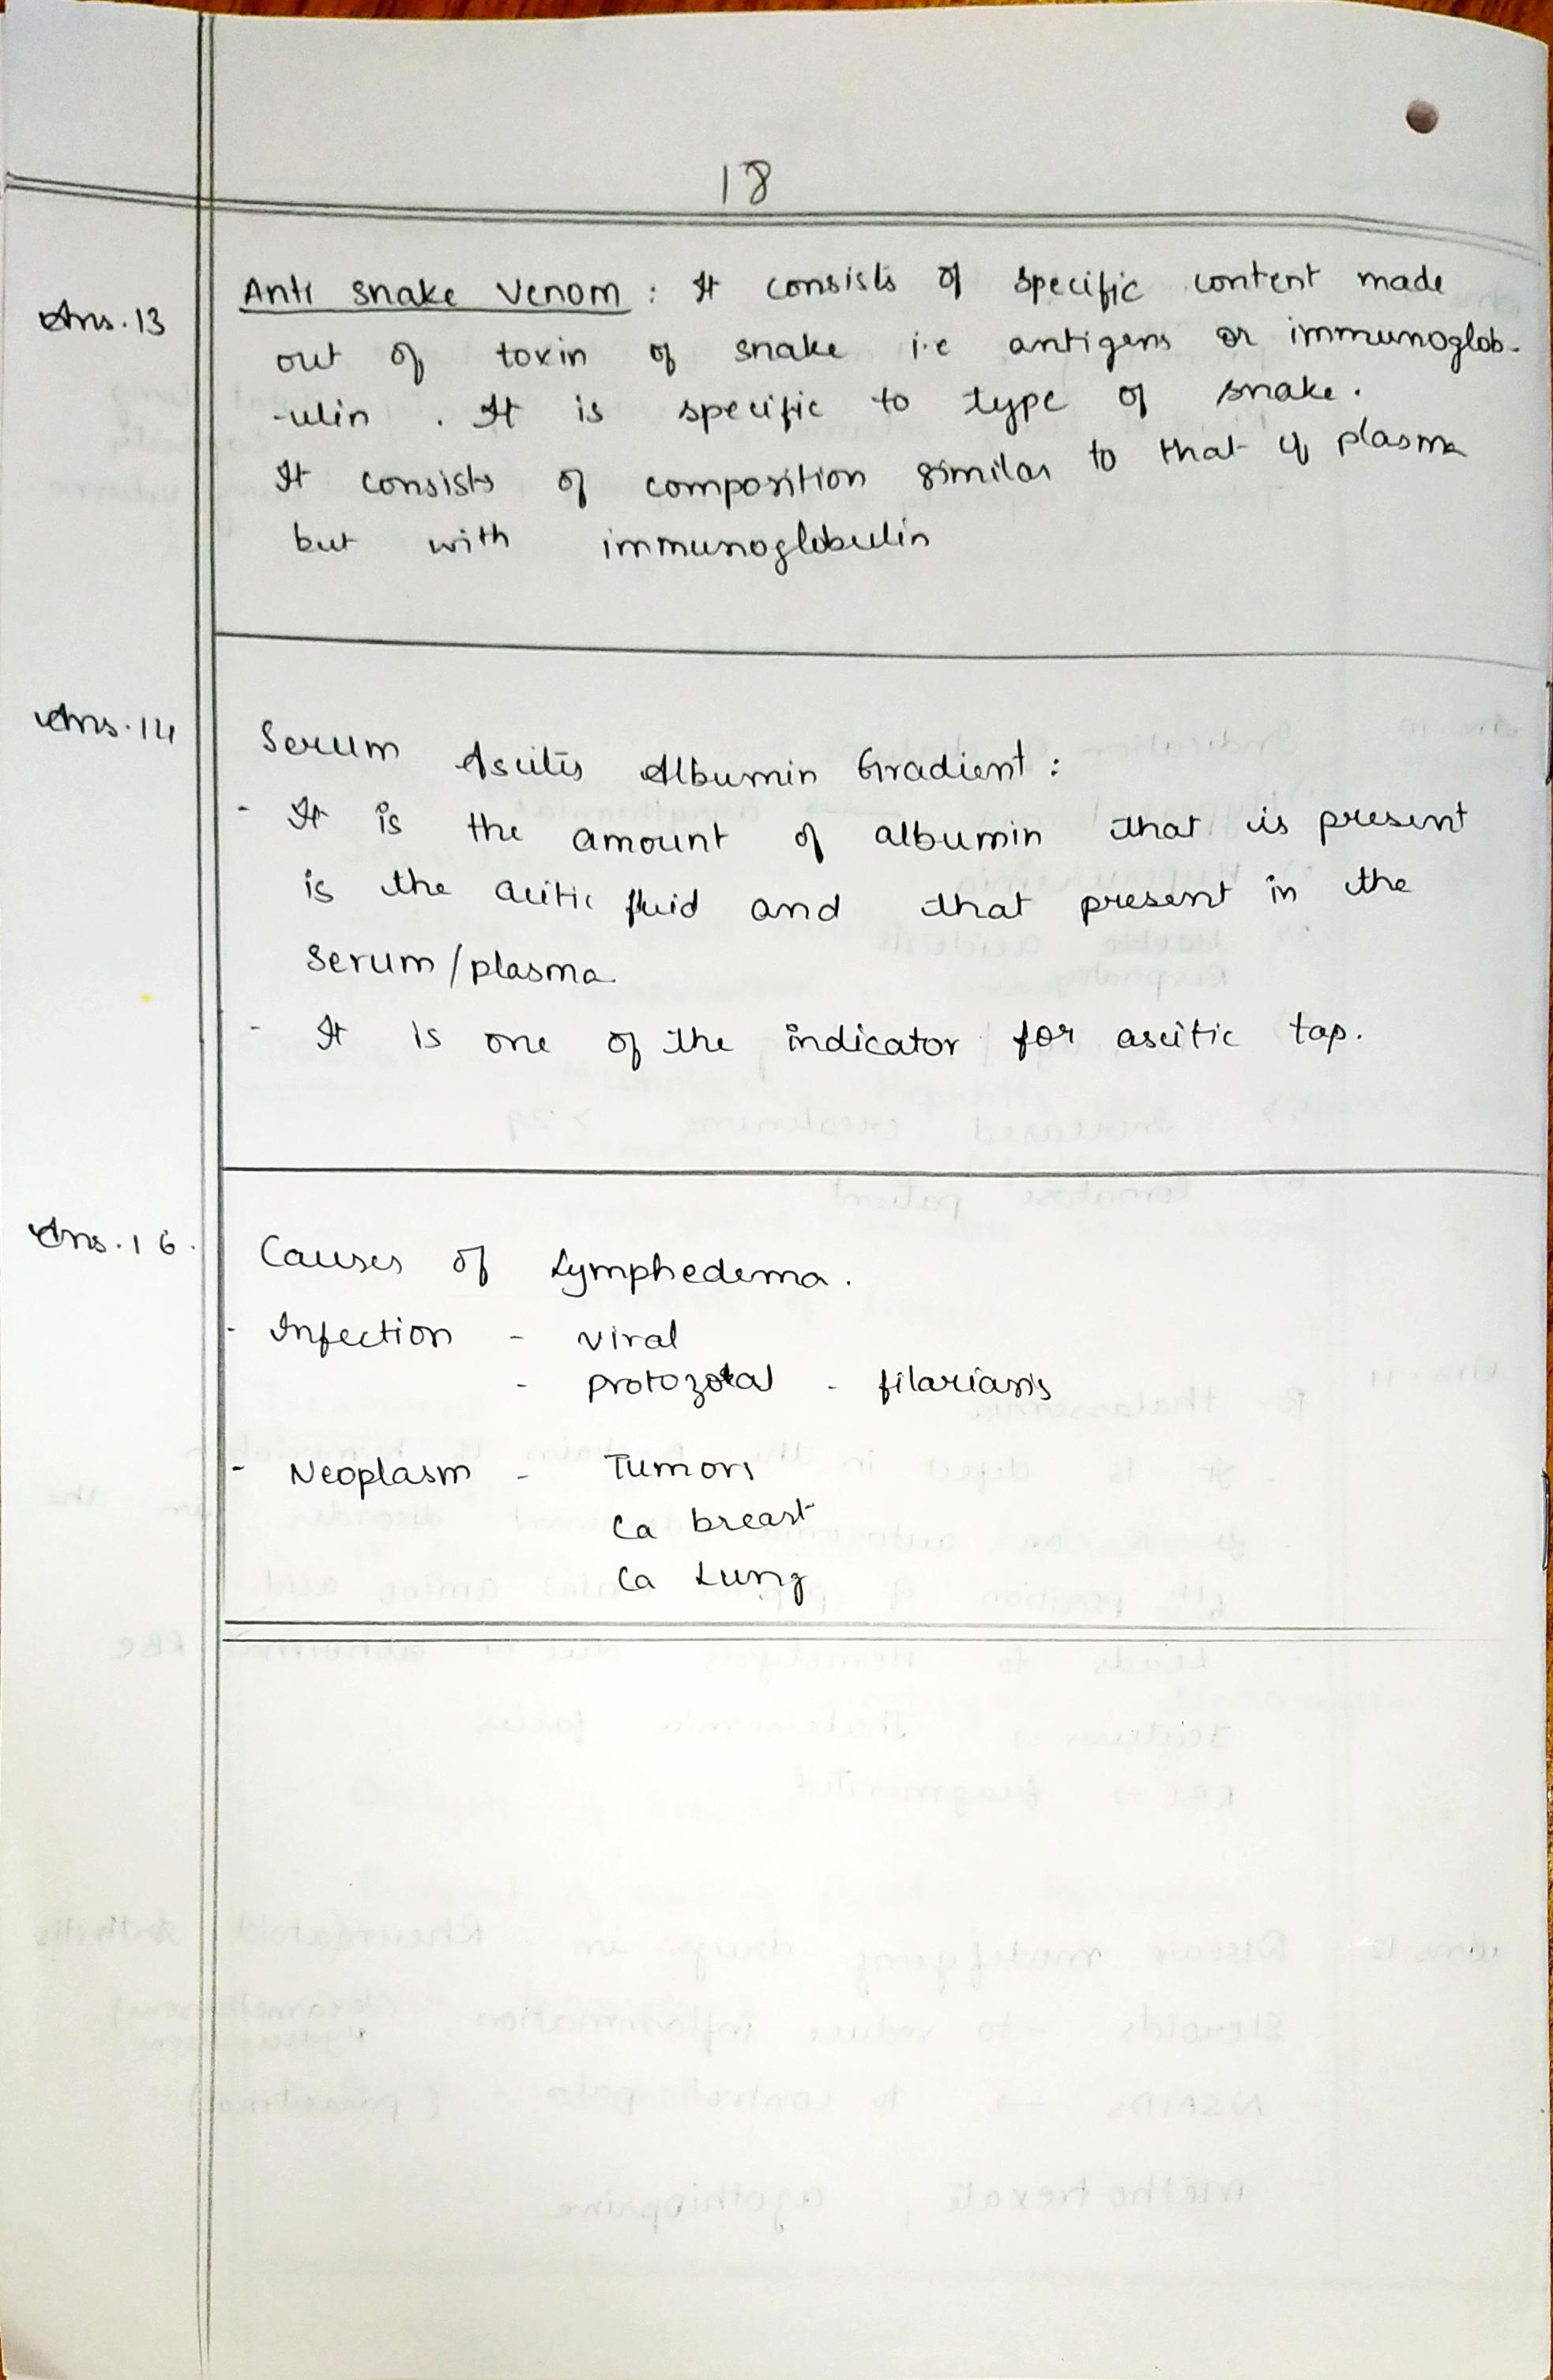 18
Ans.13 Anti snake Venom : It consists of specific content made
out of toxin of snake i.e antigens or immunoglob-
-ulin . It is specific to type of snake.
It consists of composition similar to that of plasma
but with immunoglobulin
Ans.14 Serum Ascitis Albumin Gradient :
- It is the amount of albumin that is present
is the acitic fluid and that present in the
Serum/plasma
- It is one of the indicator for ascitic tap.
Ans.16. Causes of Lymphedema.
- Infection - viral
- protozoal - filariasis
- Neoplasm - Tumors
Ca breast
Ca Lung